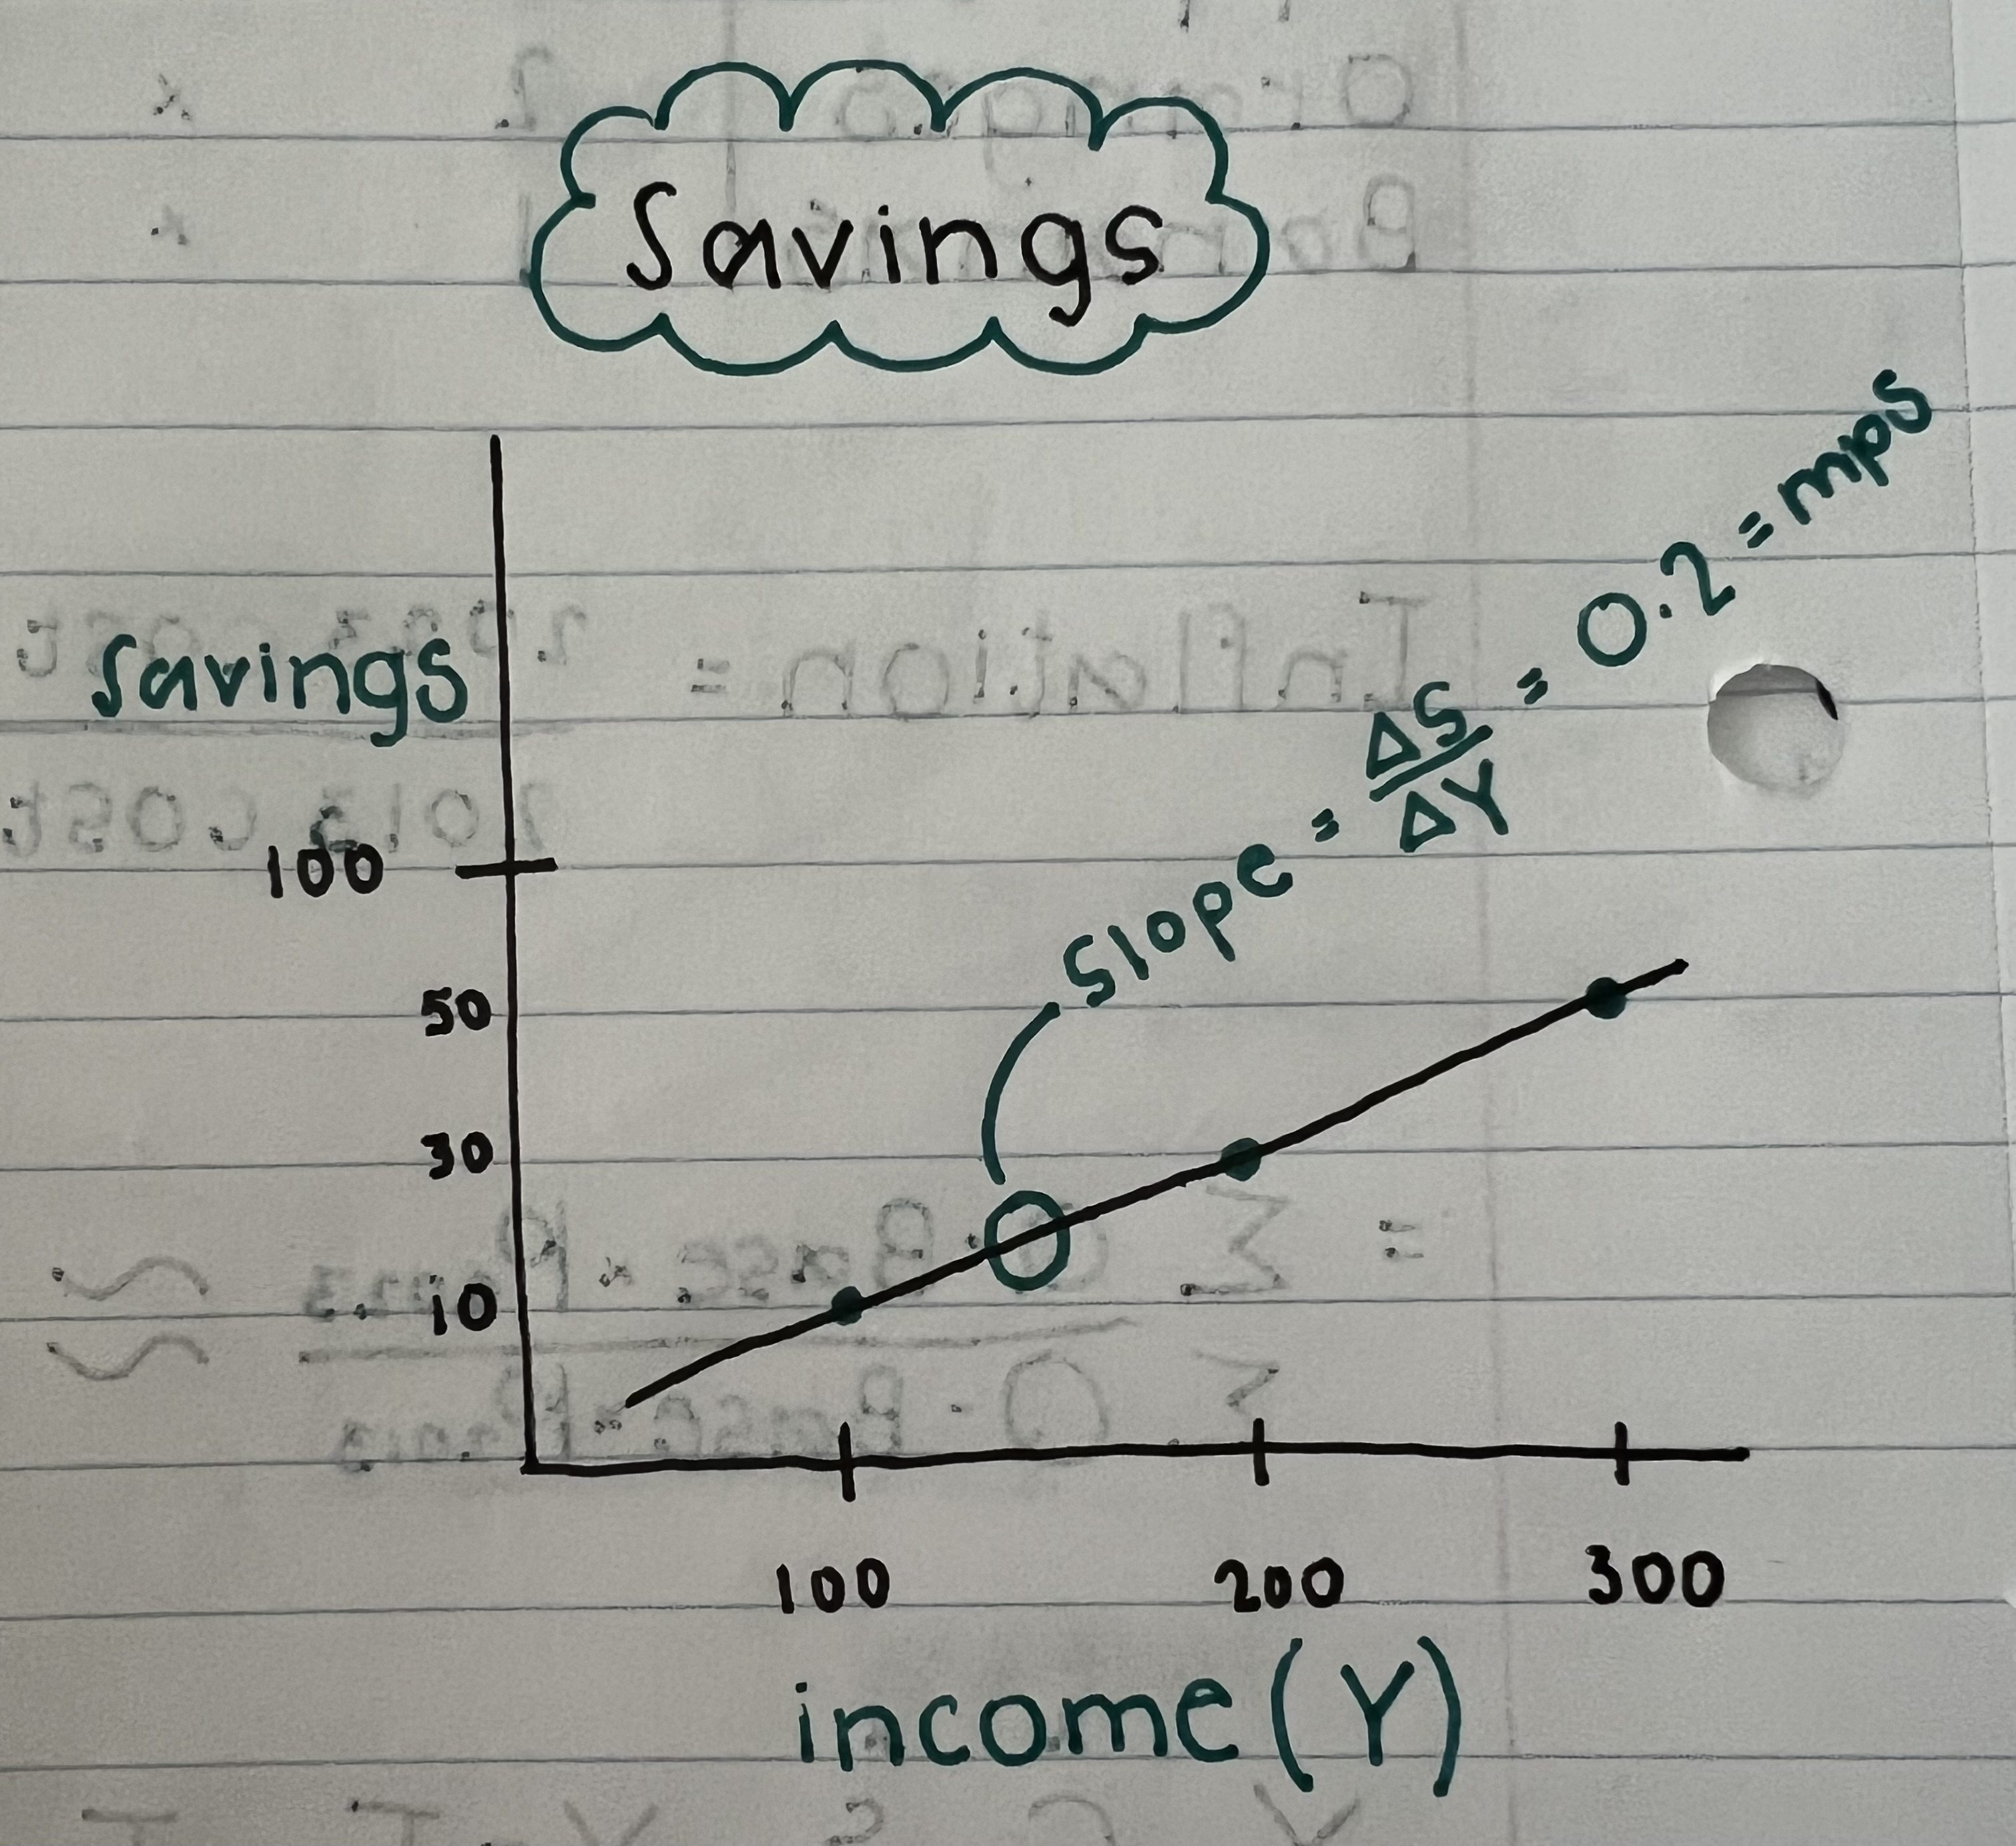 Savings
slope = ΔS/ΔY = 0.2 = mps
savings
100
50
30
10
100 200 300
income (Y)